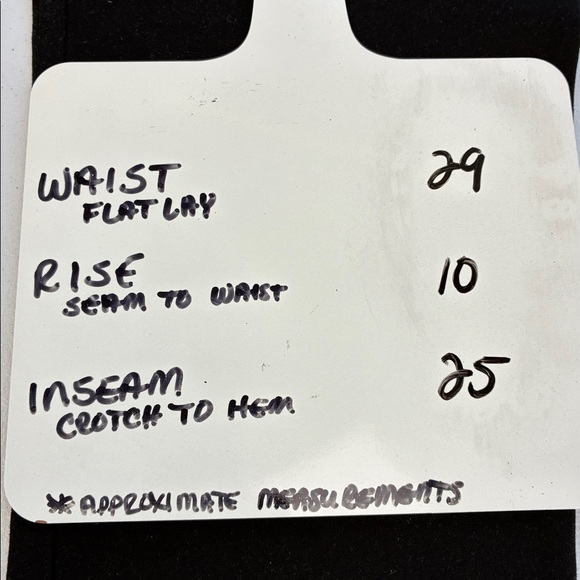 WAIST 29
FLAT LAY
RISE 10
SEAM TO WAIST
INSEAM 25
CROTCH TO HEM
*APPROXIMATE MEASUREMENTS